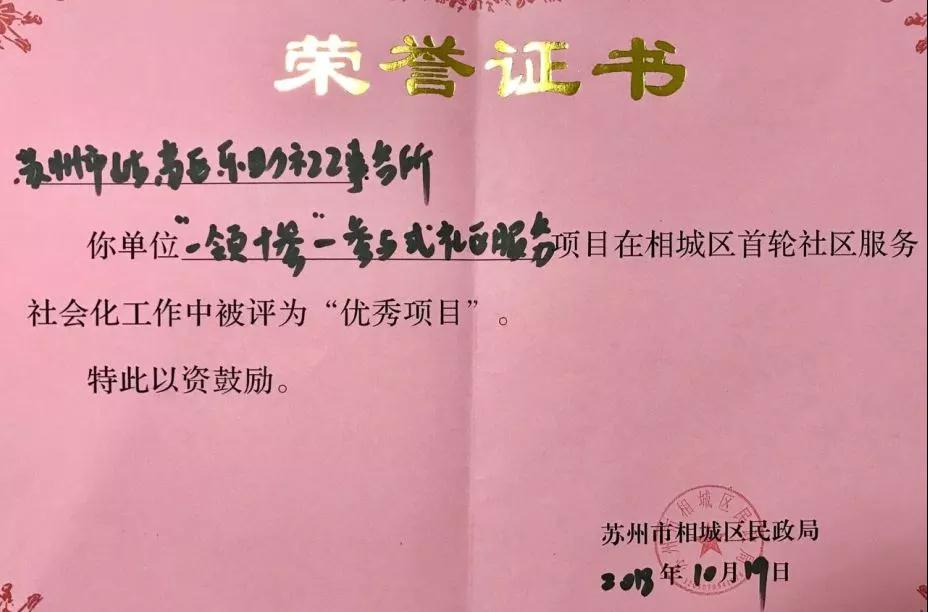 荣誉证书
苏州市 乐助社工事务所
你单位“一领十参”一参与式社区服务项目在相城区首轮社区服务
社会化工作中被评为“优秀项目”。
特此以资鼓励。
苏州市相城区民政局
年10月19日